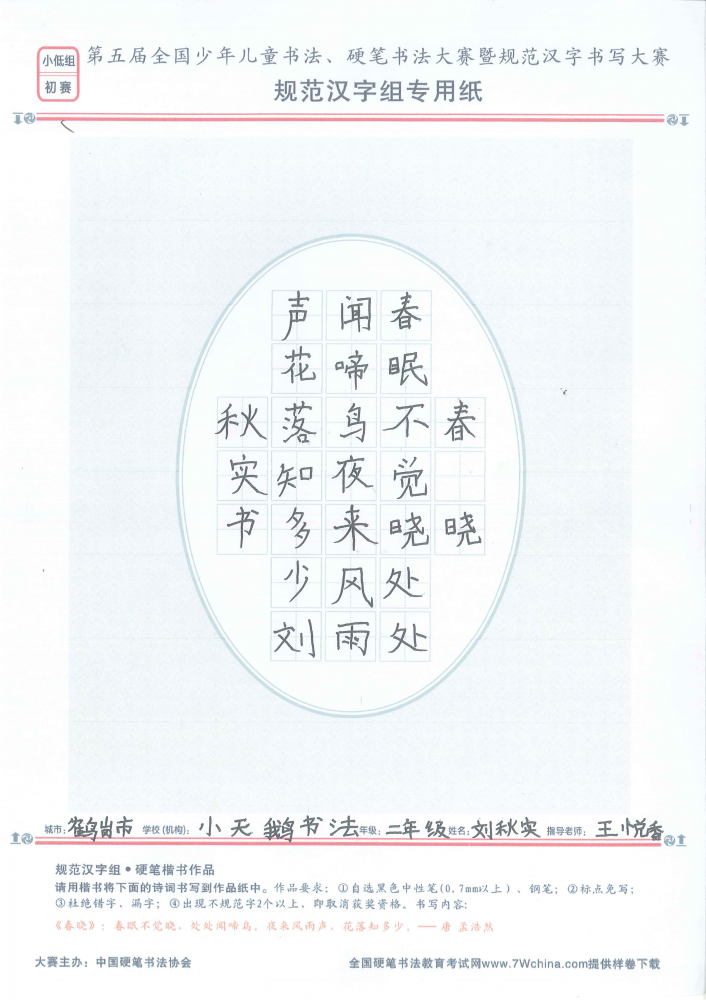 小低组
初赛
第五届全国少年儿童书法、硬笔书法大赛暨规范汉字书写大赛
规范汉字组专用纸
春晓
春眠不觉晓处处
闻啼鸟夜来风雨
声花落知多少刘
秋实书
城市：鹤岗市 学校(机构)：小天鹅书法 年级：二年级 姓名：刘秋实 指导老师：王悦香
规范汉字组·硬笔楷书作品
请用楷书将下面的诗词书写到作品纸中。作品要求：①自选黑色中性笔(0.7mm以上)、钢笔；②标点免写；
③杜绝错字、漏字；④出现不规范字2个以上，即取消获奖资格。书写内容：
《春晓》：春眠不觉晓，处处闻啼鸟。夜来风雨声，花落知多少。——唐 孟浩然
大赛主办：中国硬笔书法协会 全国硬笔书法教育考试网www.7Wchina.com提供样卷下载